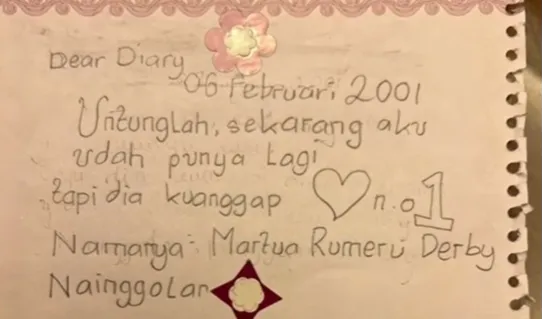 Dear Diary
06 Februari 2001
Untunglah, sekarang aku
udah punya Lagi
tapi dia kuanggap ♡ n.o 1
Namanya: Martua Rumeru Derby
Nainggolan